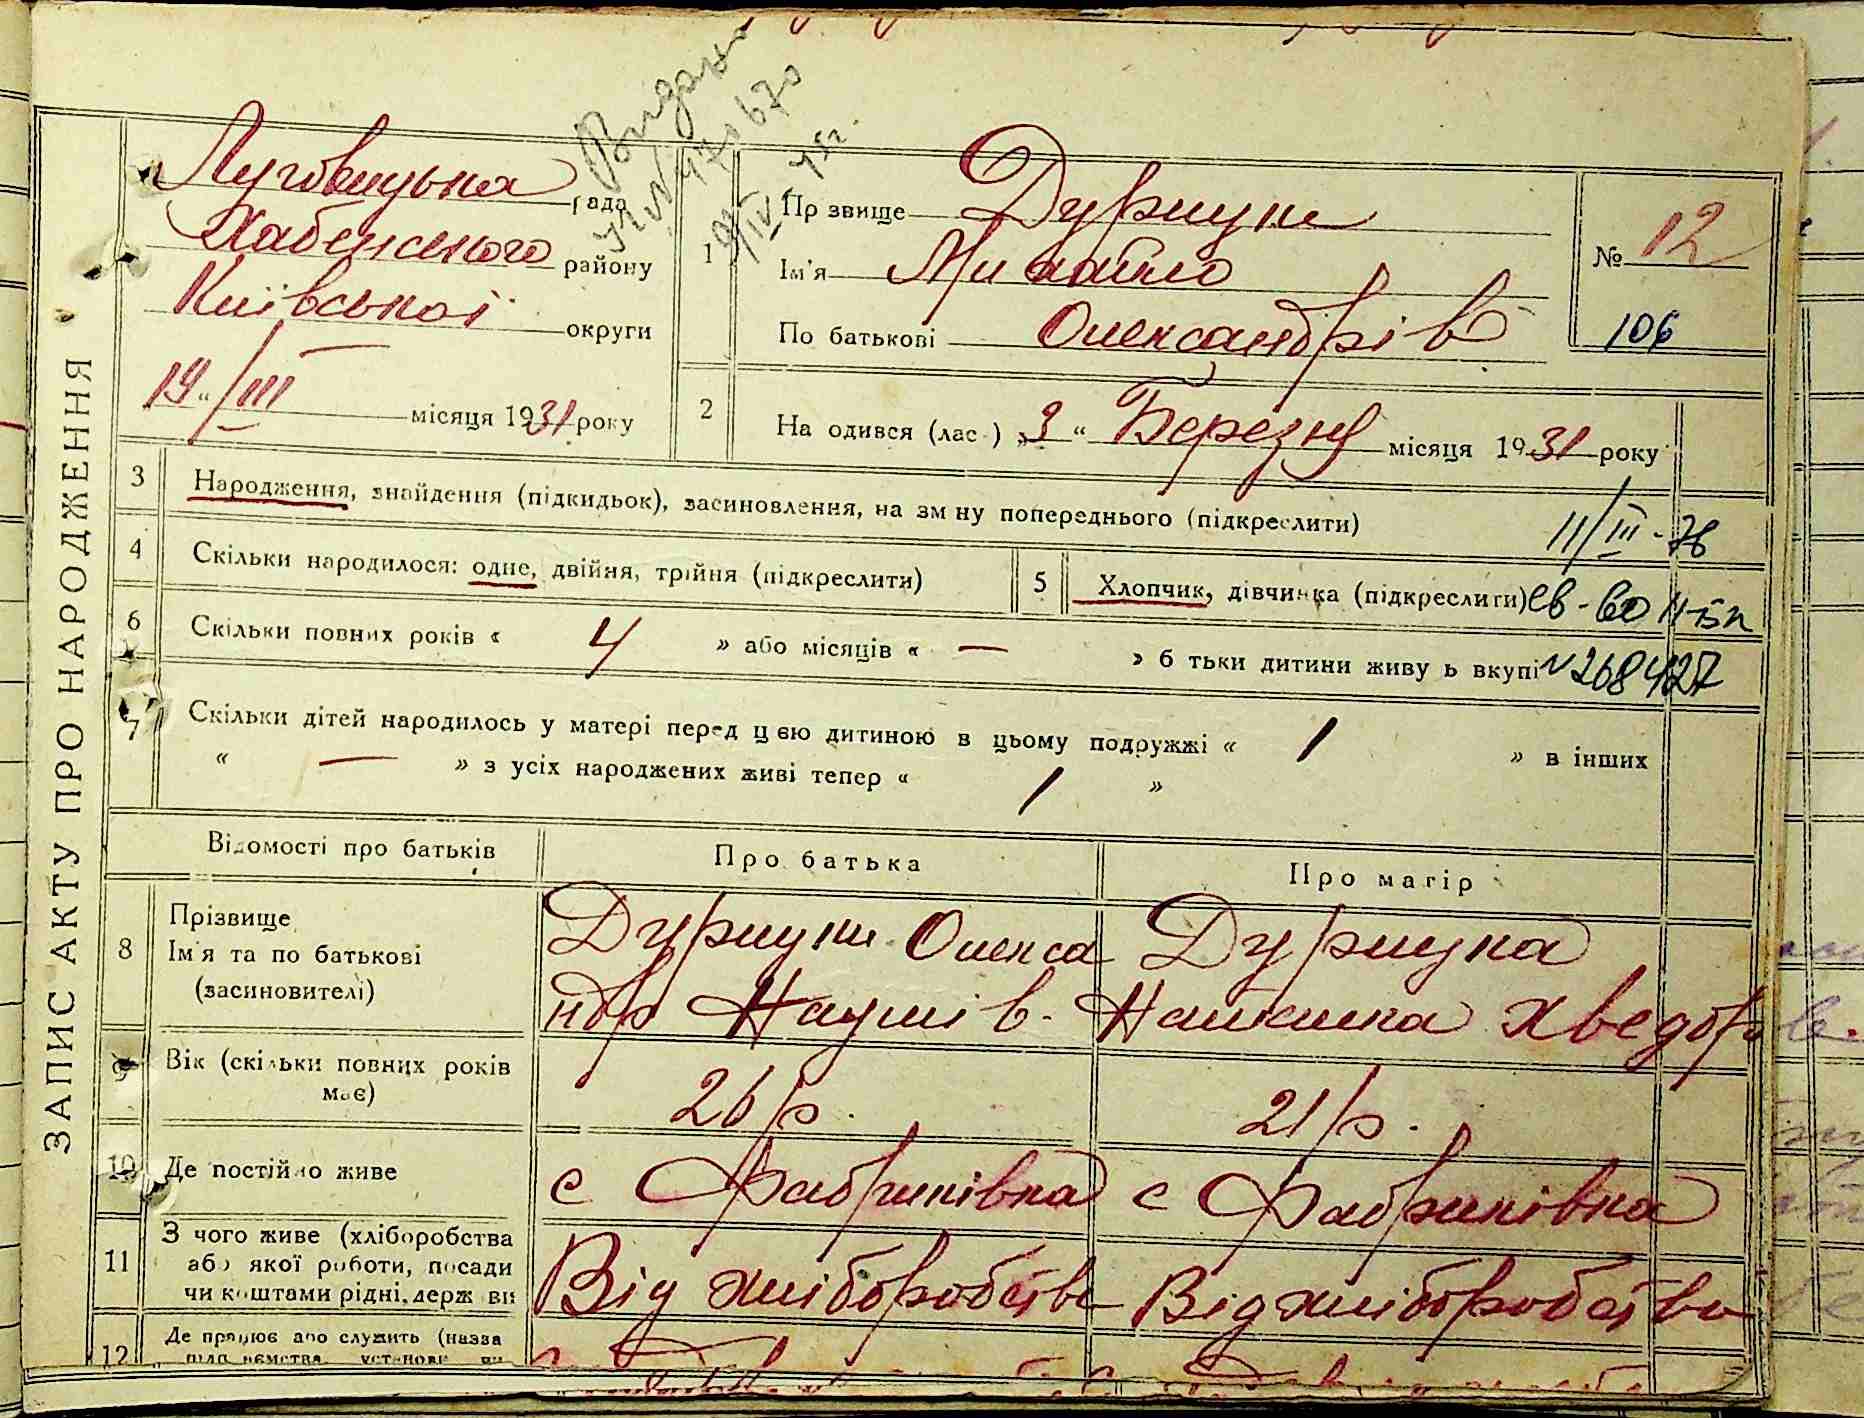 ЗАПИС АКТУ ПРО НАРОДЖЕННЯ
Видано
Луговицька рада
Хабенського району
Київської округи
19 " /III місяця 1931 року
1
Пр звище Дурицки
Ім'я Михайло
По батькові Олександрів
№ 12
106
2
На одився (лас ) „3 " Березня місяця 1931 року
3
Народження, знайдення (підкидьок), засиновлення, на зм ну попереднього (підкреслити)
11/III - 76
4
Скільки народилося: одне, двійня, трійня (підкреслити)
5
Хлопчик, дівчинка (підкреслити) св-во II-БК
6
Скільки повних років « 4 » або місяців « — » б тьки дитини живу ь вкупі N 268427
7
Скільки дітей народилось у матері перед цією дитиною в цьому подружжі « 1 » в інших
« — » з усіх народжених живі тепер « 1 »
Відомості про батьків
Про батька
Про матір
8
Прізвище
Ім'я та по батькові
(засиновителі)
Олекса
ндр Наумів. Наталка Хведорів.
9
Вік (скільки повних років має)
26 р.
21 р.
10
Де постійно живе
с Фабриківка
с Фабриківка
11
З чого живе (хліборобства
або якої роботи, посади
чи коштами рідні, держ ви
Від хліборобства
Від хліборобства
12
Де працює або служить (назва